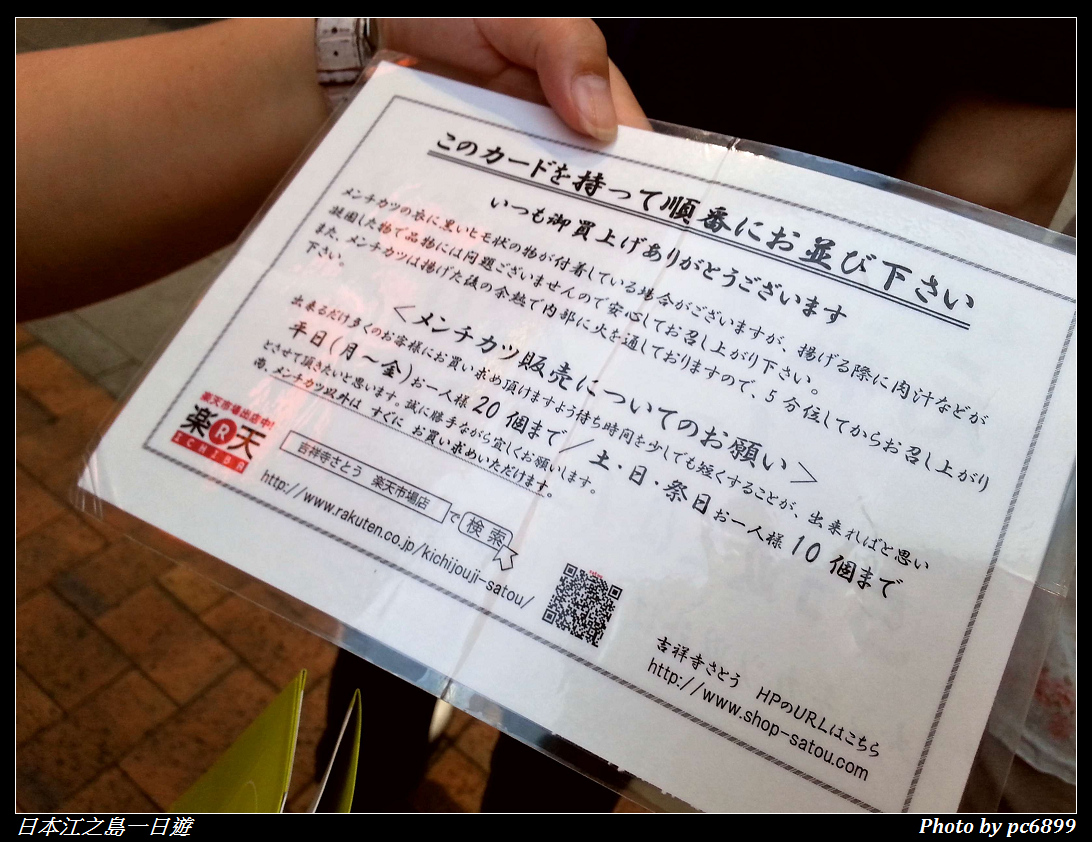 このカードを持って順番にお並び下さい
いつも御買上げありがとうございます
メンチカツの衣に黒いヒモ状の物が付着している場合がございますが、揚げる際に肉汁などが
凝固した物で品物には問題ございませんので安心してお召し上がり下さい。
また、メンチカツは揚げた後の余熱で内部に火を通しておりますので、5分位してからお召し上がり
下さい。
＜メンチカツ販売についてのお願い＞
出来るだけ多くのお客様にお買い求め頂けますよう待ち時間を少しでも短くすることが、出来ればと思い
平日(月～金)お一人様20個まで／土・日・祭日お一人様10個まで
とさせて頂きたいと思います。誠に勝手ながら宜しくお願いします。
尚、メンチカツ以外は すぐに お買い求めいただけます。
楽天市場出店中!
楽R天
ICHIBA
吉祥寺さとう 楽天市場店 で 検索
http://www.rakuten.co.jp/kichijouji-satou/
吉祥寺さとう HPのURLはこちら
http://www.shop-satou.com
日本江之島一日遊
Photo by pc6899